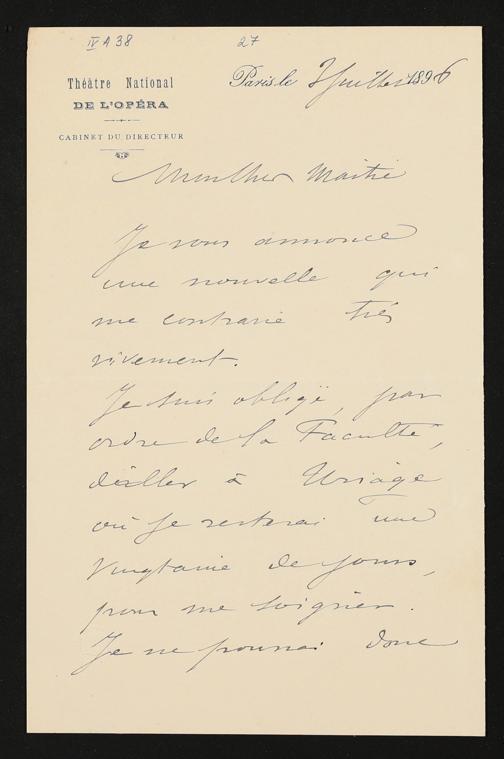 IV A 38 27
Théâtre National
DE L'OPÉRA
CABINET DU DIRECTEUR
Paris le Juillet 1896
Mon cher Maître
Je vous annonce
une nouvelle qui
me contrarie très
vivement.
Je suis obligé, par
ordre de la Faculté,
d'aller à Uriage
où je resterai une
vingtaine de jours,
pour me soigner.
Je ne pourrai donc